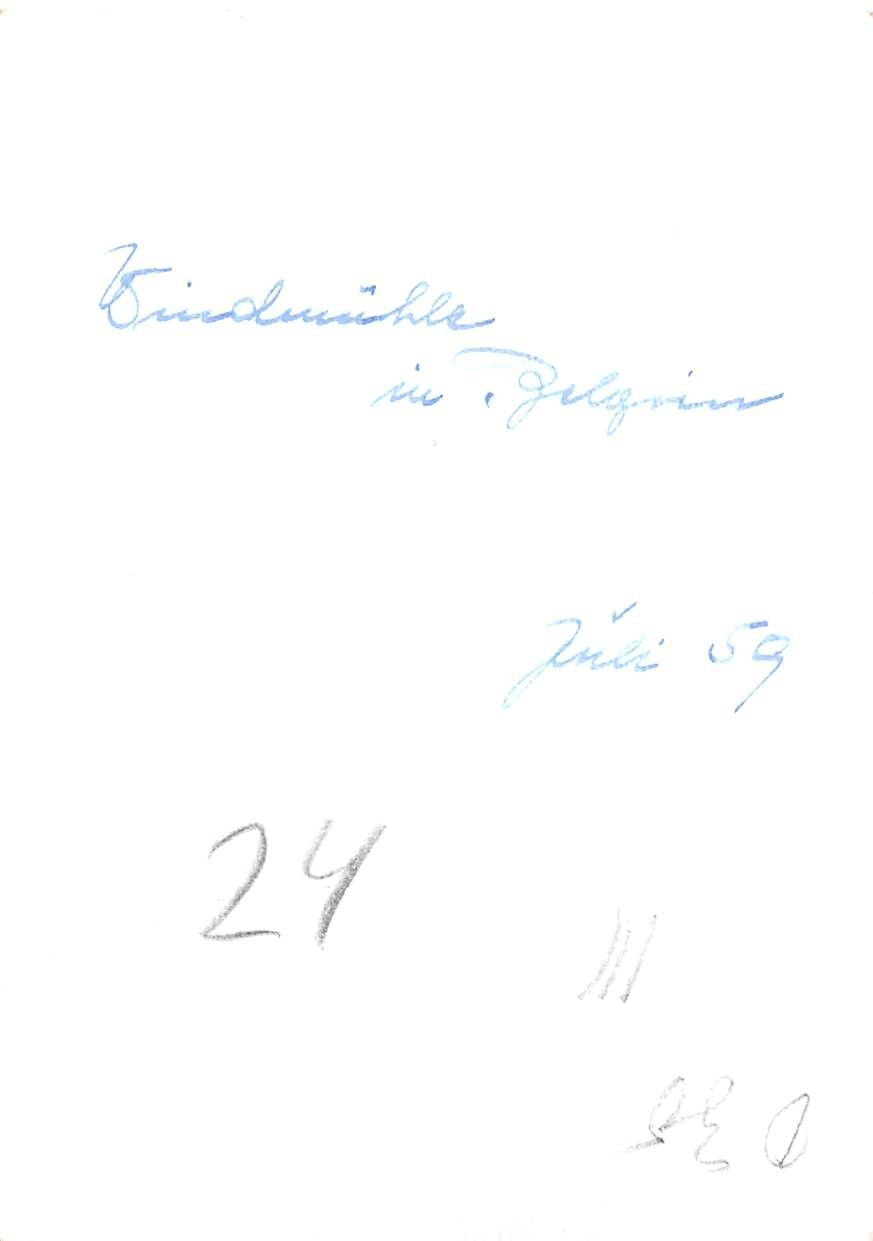 Windmühle
in Belgien
Juli 59
24
III